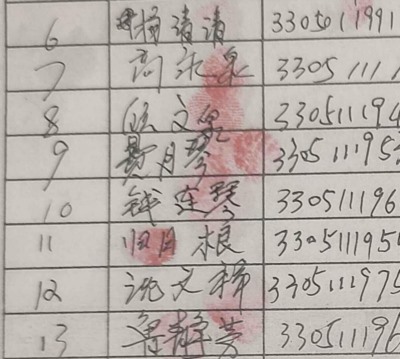 6 杨清清 33050111991
7 高永泉 3305 1111
8 文泉 330511194
9 月琴 3305 111953
10 钱连琴 330511196
11 归月根 3305111951
12 沈文梯 3305111975
13 鲁静芳 330511196